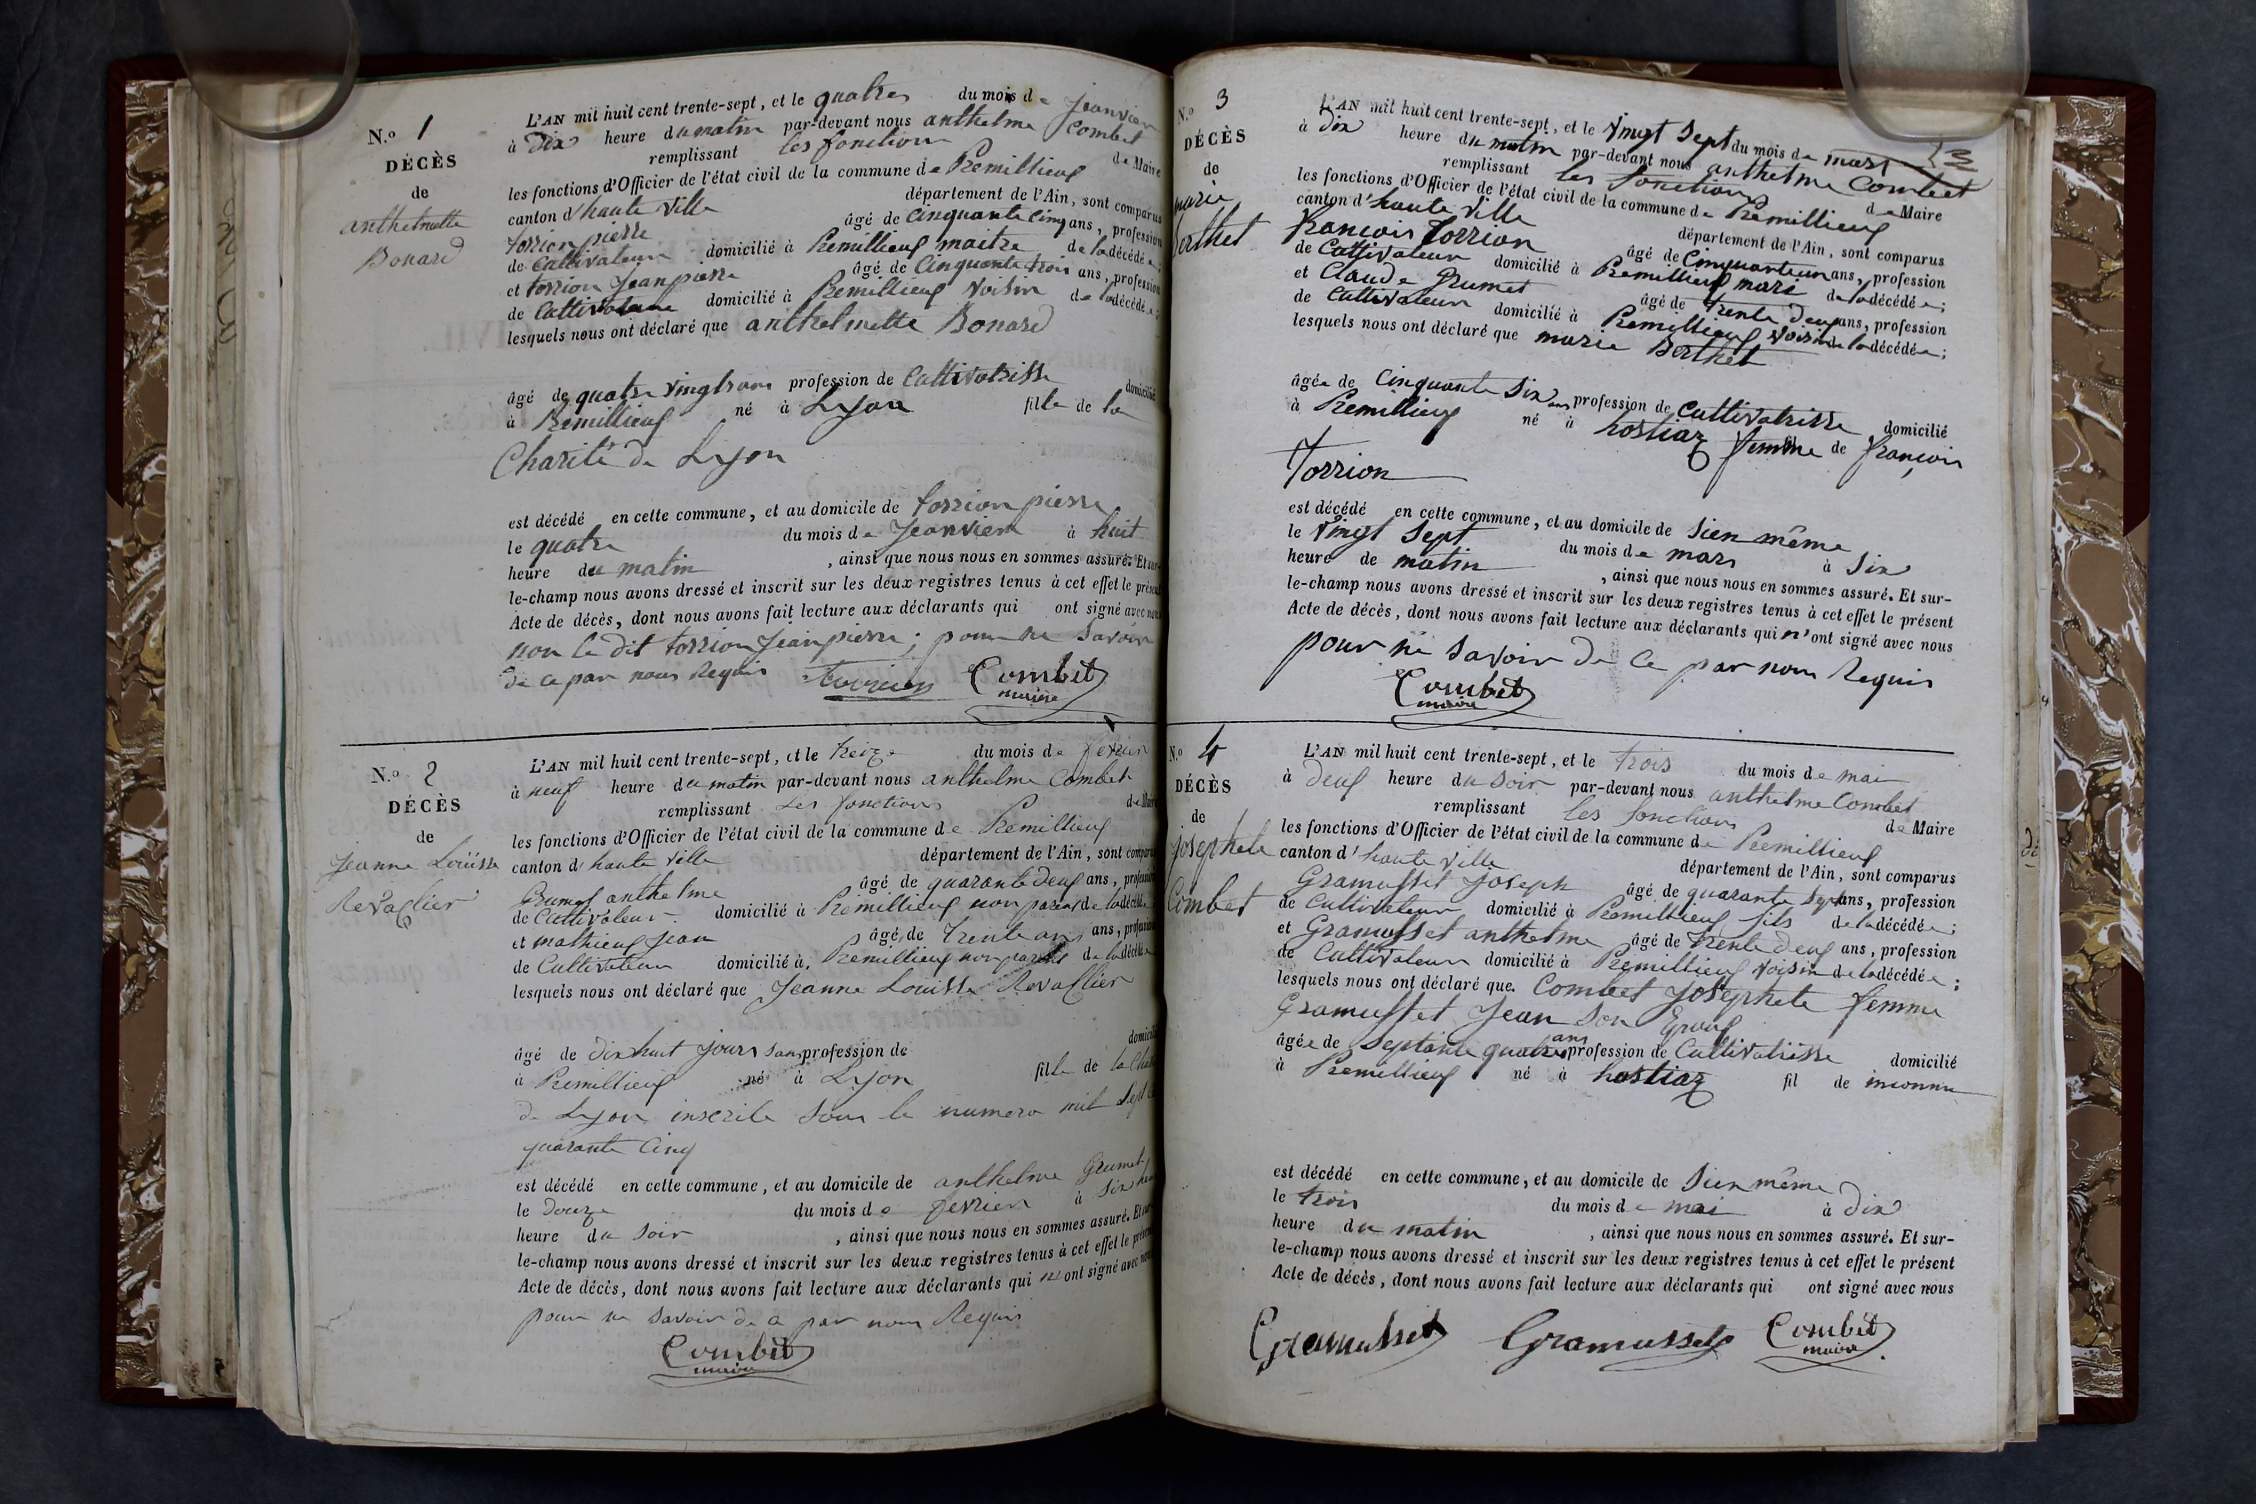 N.º 1
DÉCÈS
de
anthelmette
Bonard
L'AN mil huit cent trente-sept, et le quatre du mois de Jeanvier
à Dix heure du matin par-devant nous anthelme Combet
remplissant les fonction de Maire
les fonctions d'Officier de l'état civil de la commune de Premillieuf
canton d'haute Ville département de l'Ain, sont comparus
Torrion pierre âgé de Cinquante cinq ans, profession
de Cultivateur domicilié à Premillieuf maitre de la décédée;
et torrion Jean pierre âgé de Cinquante trois ans, profession
de Cultivateur domicilié à Premillieuf Voisin de la décédée;
lesquels nous ont déclaré que anthelmette Bonard
âgé de quatre Vingt ans profession de Cultivatrisse domicilié
à Premillieuf né à Lyon fille de la
Charité de Lyon
est décédé en cette commune, et au domicile de torrion pierre
le quatre du mois de Jeanvier à huit
heure du matin, ainsi que nous nous en sommes assuré. Et sur-
le-champ nous avons dressé et inscrit sur les deux registres tenus à cet effet le présent
Acte de décès, dont nous avons fait lecture aux déclarants qui ont signé avec nous
non le dit torrion Jean pierre; pour ne Savoir
de ce par nous Requis
Combet
maire
N.º 2
DÉCÈS
de
Jeanne Louisse
Revaflier
L'AN mil huit cent trente-sept, et le treize du mois de fevrier
à neuf heure du matin par-devant nous anthelme Combet
remplissant Les fonctions de Maire
les fonctions d'Officier de l'état civil de la commune de Premillieuf
canton d'haute Ville département de l'Ain, sont comparus
Grumet anthelme âgé de quarante deuf ans, profession
de Cultivateur domicilié à Premillieuf non parens de la décédée
et mathieuf Jean âgé de trente ans ans, profession
de Cultivateur domicilié à Premillieuf non parens de la décédée
lesquels nous ont déclaré que Jeanne Louisse Revaflier
âgé de dix huit Jours sans profession de domicilié
à Premillieuf né à Lyon fille de la
de Lyon inscrite sous le numero mil Sept
quarante Cinq
est décédé en cette commune, et au domicile de anthelme Grumet
le douze du mois de fevrier à Six
heure du Soir, ainsi que nous nous en sommes assuré. Et sur-
le-champ nous avons dressé et inscrit sur les deux registres tenus à cet effet le présent
Acte de décès, dont nous avons fait lecture aux déclarants qui n'ont signé avec nous
pour ne savoir de ce par nous Requis
Combet
maire
3
N.º 3
DÉCÈS
de
marie
Berthet
L'AN mil huit cent trente-sept, et le Vingt Sept du mois de mars
à Dix heure du matin par-devant nous anthelme Combet
remplissant les fonctions de Maire
les fonctions d'Officier de l'état civil de la commune de Premillieuf
canton d'haute Ville département de l'Ain, sont comparus
françois Torrion âgé de Cinquante un ans, profession
de Cultivateur domicilié à Premillieuf mari de la décédée;
et Claude Grumet âgé de trente deuf ans, profession
de Cultivateur domicilié à Premillieuf Voisin de la décédée;
lesquels nous ont déclaré que marie Berthet
âgée de Cinquante Six ans profession de Cultivatrisse domicilié
à Premillieuf né à hostiaz femme de françois
Torrion
est décédé en cette commune, et au domicile de Sien même
le Vingt Sept du mois de mars à Six
heure de matin, ainsi que nous nous en sommes assuré. Et sur-
le-champ nous avons dressé et inscrit sur les deux registres tenus à cet effet le présent
Acte de décès, dont nous avons fait lecture aux déclarants qui n'ont signé avec nous
pour ne Savoir De Ce par nous Requis
Combet
maire
N.º 4
DÉCÈS
de
Josephete
Combet
L'AN mil huit cent trente-sept, et le trois du mois de mai
à deuf heure du Soir par-devant nous anthelme Combet
remplissant les fonctions de Maire
les fonctions d'Officier de l'état civil de la commune de Premillieuf
canton d'haute Ville département de l'Ain, sont comparus
Gramusset Joseph âgé de quarante Sept ans, profession
de Cultivateur domicilié à Premillieuf fils de la décédée;
et Gramusset anthelme âgé de trente deuf ans, profession
de Cultivateur domicilié à Premillieuf Voisin de la décédée;
lesquels nous ont déclaré que Combet Josephete femme
Gramusset Jean Son Epouf
âgée de Septante quatre ans profession de Cultivatrisse domicilié
à Premillieuf né à hostiaz fil de inconnu
est décédé en cette commune, et au domicile de Sien même
le trois du mois de mai à Dix
heure du matin, ainsi que nous nous en sommes assuré. Et sur-
le-champ nous avons dressé et inscrit sur les deux registres tenus à cet effet le présent
Acte de décès, dont nous avons fait lecture aux déclarants qui ont signé avec nous
Gramusset Gramusset Combet
maire